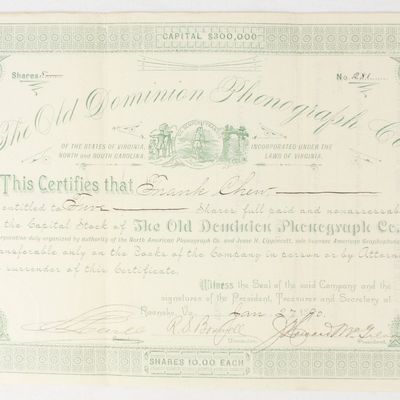 CAPITAL $300,000
Shares
No. 281
The Old Dominion Phonograph Co.
OF THE STATES OF VIRGINIA, NORTH AND SOUTH CAROLINA.
INCORPORATED UNDER THE LAWS OF VIRGINIA.
This Certifies that Frank Chew
entitled to Five Shares full paid and nonassessable
the Capital Stock of The Old Dominion Phonograph Co.
corporation duly organized by authority of the North American Phonograph Co. and Jesse H. Lippincott, sole licensee American Graphophone
transferable only on the Books of the Company in person or by Attorney
surrender of this Certificate.
Witness the Seal of the said Company and the
signatures of the President, Treasurer and Secretary at
Roanoke, Va. Jan 27 90
SHARES 10.00 EACH